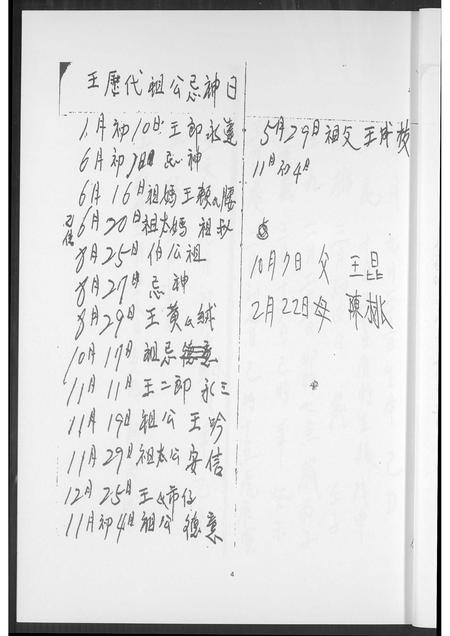 王歷代祖公忌神日
1月初10日王郎永蓮
6月初1日忌神
6月16日祖媽王賴九腰
6月20日祖太媽 祖叔
8月25日伯公祖
8月27日忌神
8月29日王黃么絨
10月19日祖忌德意
11月11日王二郎永三
11月19日祖公王吟
11月29日祖太公安信
12月25日王 仔
11月初4日祖公德意
5月29日祖父王成枝
11月初4日
10月7日父 王昆
2月22日母 陳桃
4